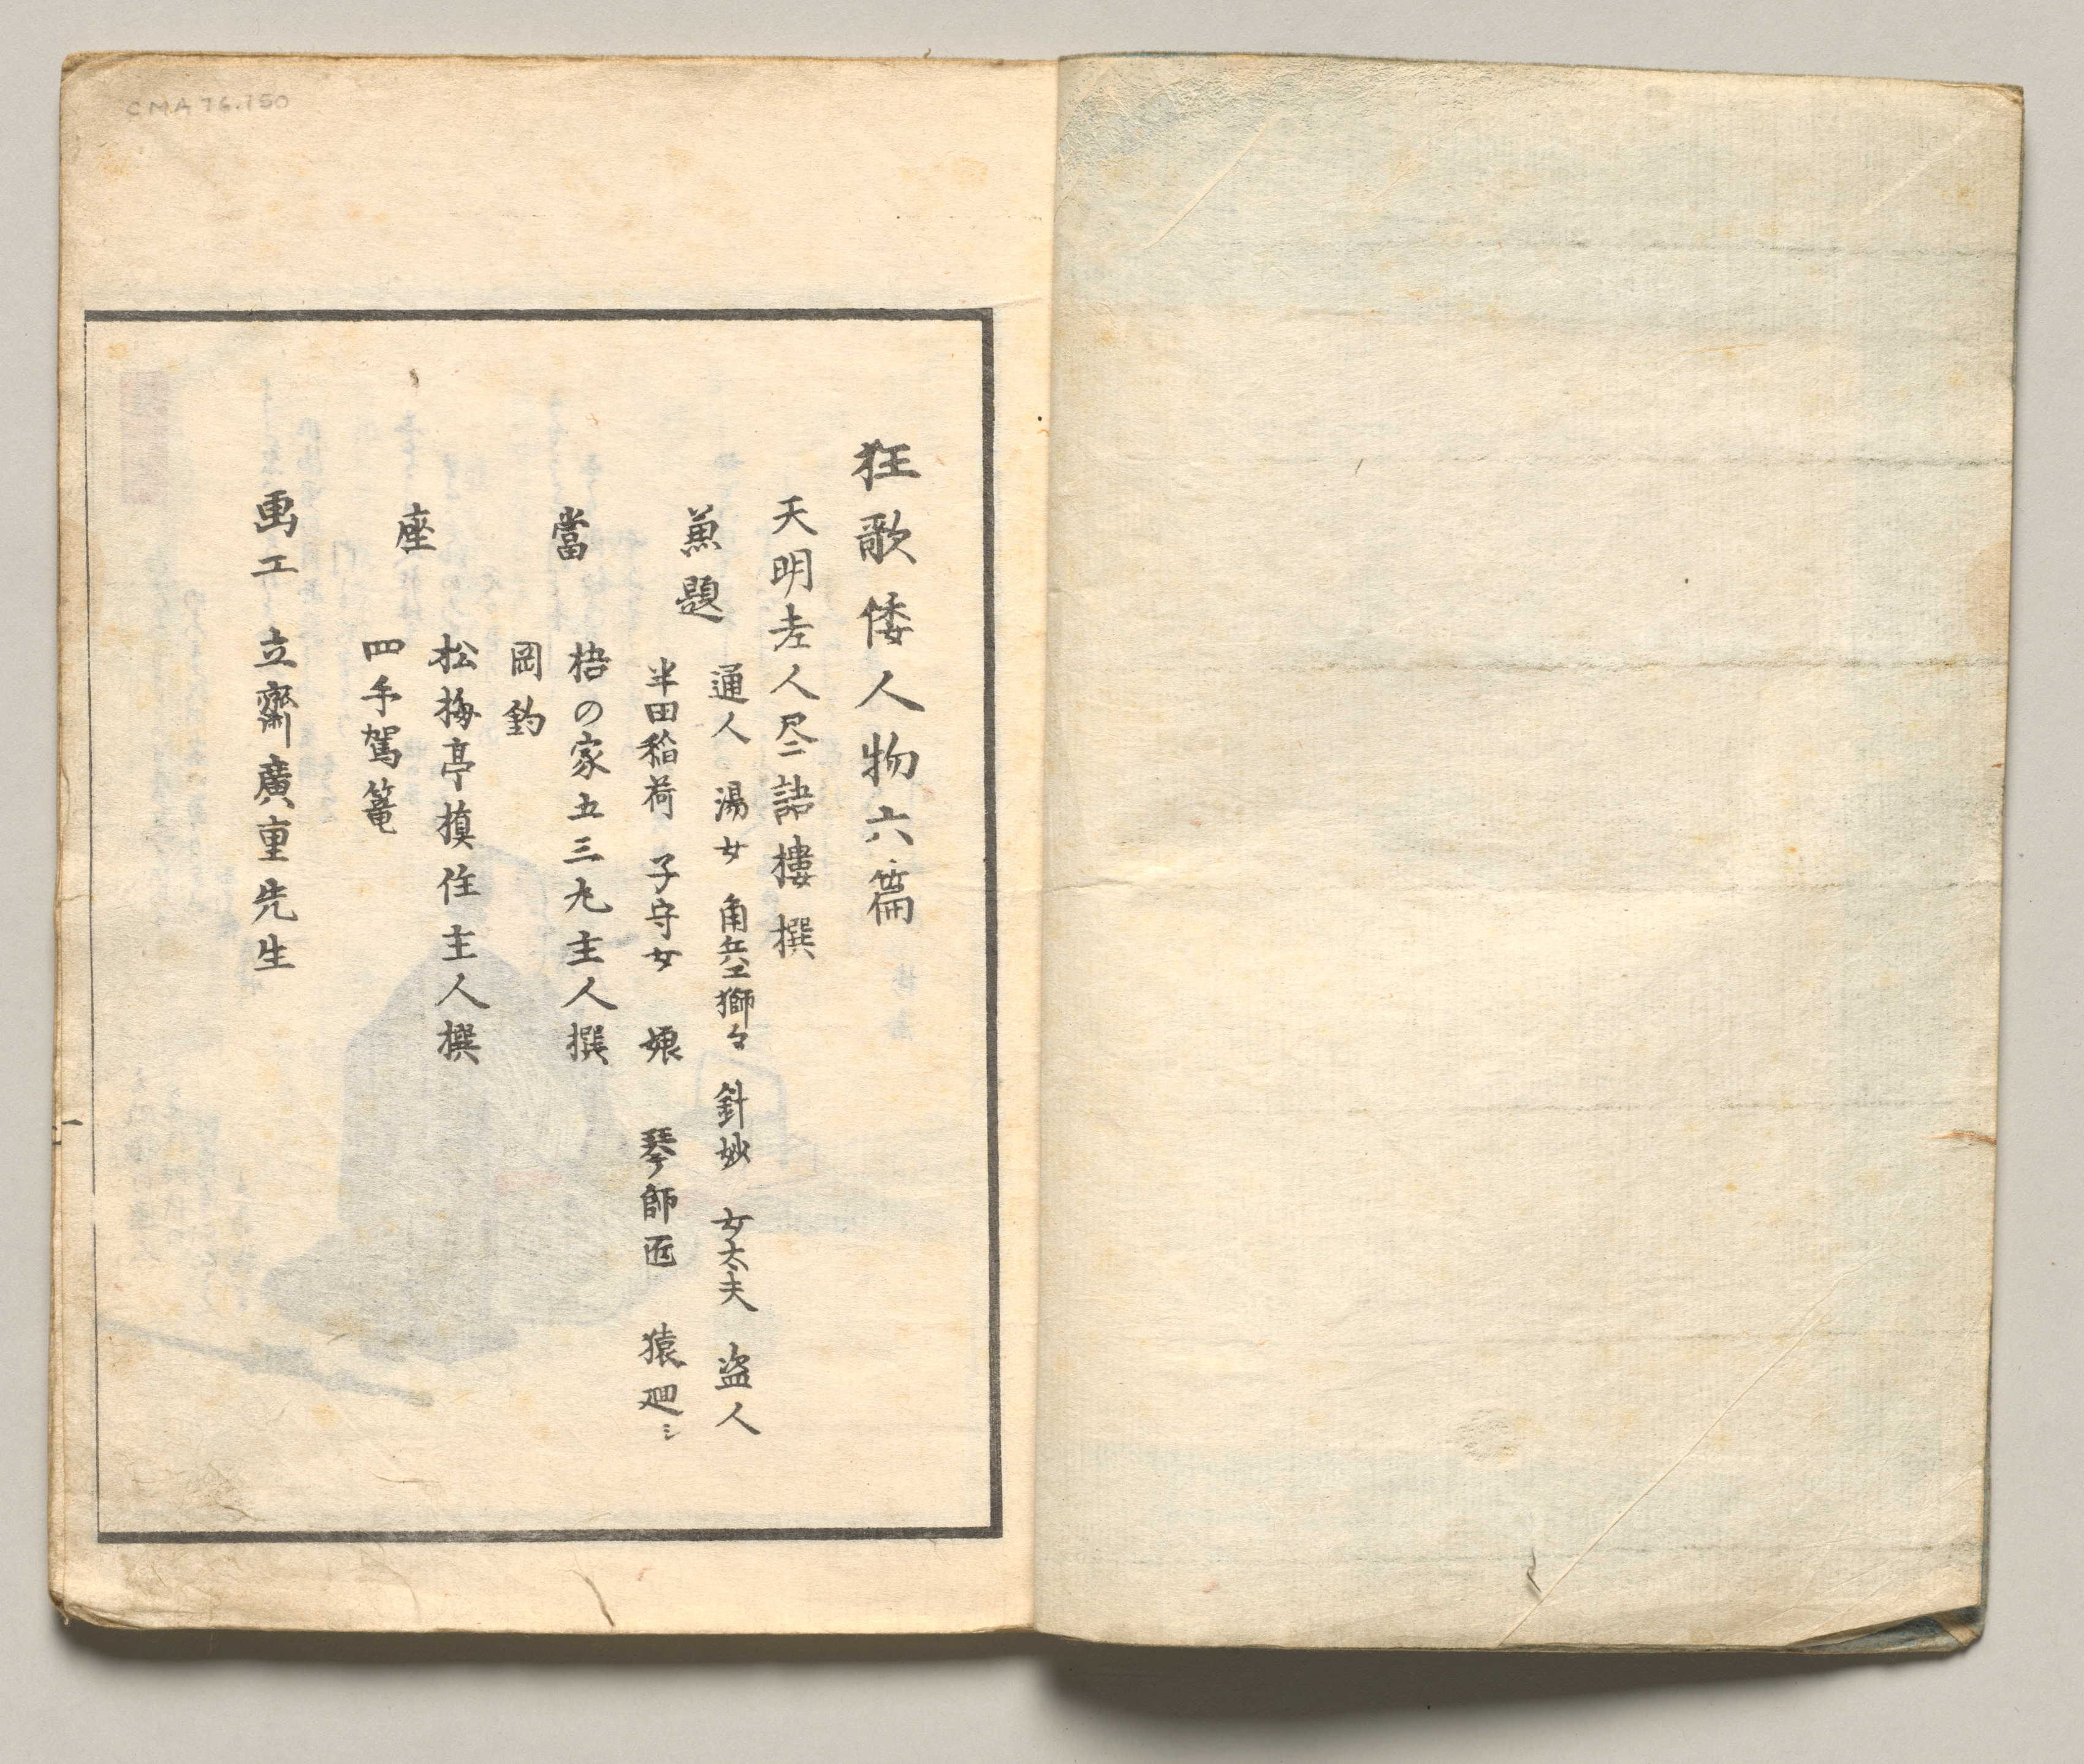 狂歌倭人物六篇
天明老人尽語樓撰
兼題
通人 湯女 角兵エ獅々 針妙 女太夫 盗人
半田稲荷 子守女 娘 琴師匠 猿廻シ
當
梧の家五三九主人撰
岡釣
座
松梅亭槙住主人撰
四手駕篭
画工 立齋廣重先生
CMA 76.150